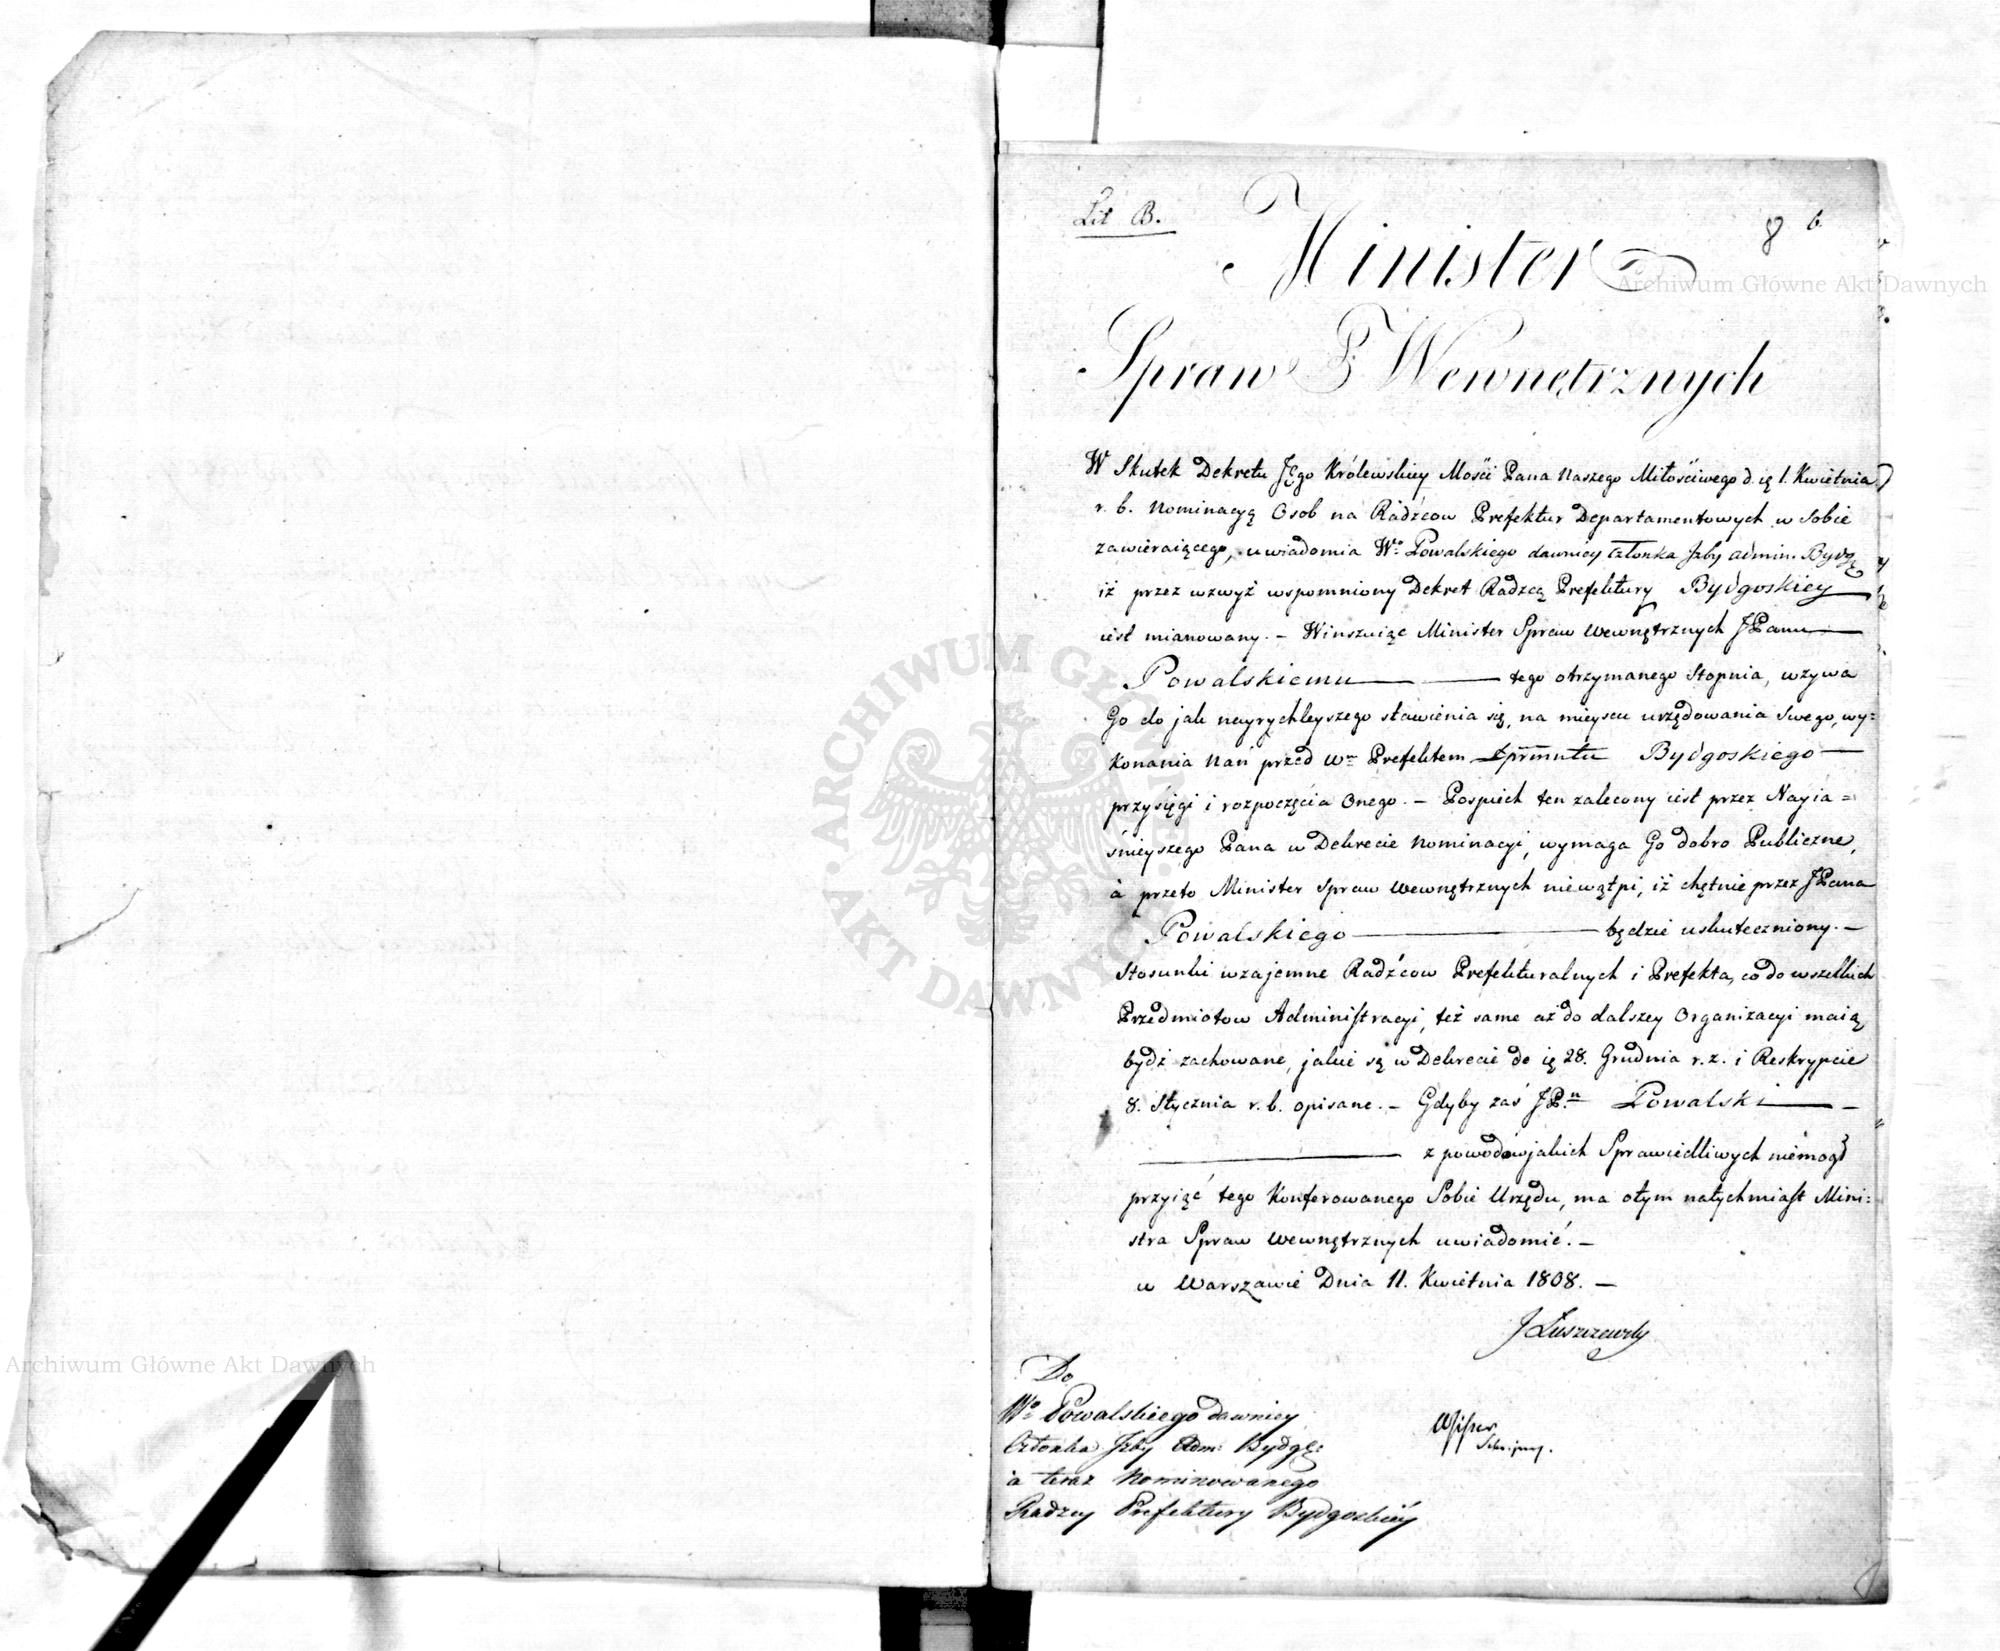 Lit B.
8 6
Minister
Spraw Wewnętrznych
W Skutek Dekretu JEgo Królewskiey Mości Pana Naszego Miłościwego d. ię 1. Kwietnia
r. b. Nominacyą Osob na Radźcow Prefektur Departamentowych w Sobie
zawieraiącego, uwiadomia Wo Powalskiego dawniey członka Izby admin. Bydg
iż przez wzwyż wspomniony Dekret Radzcą Prefektury Bydgoskiey
iest mianowany. – Winszuiąc Minister Spraw Wewnętrznych JPanu
Powalskiemu tego otrzymanego Stopnia, wzywa
Go do jak nayrychleyszego stawienia się, na mieyscu urzędowania swego, wy=
konania nań przed Wm Prefektem Dprmntu Bydgoskiego
przysięgi i rozpoczęcia Onego. – Pospiech ten zalecony iest przez Nayia=
śnieyszego Pana w Dekrecie Nominacyi, wymaga Go dobro Publiczne,
à przeto Minister Spraw Wewnętrznych niewątpi, iż chętnie przez JPana
Powalskiego będzie uskuteczniony. –
Stosunki wzajemne Radźcow Prefekturalnych i Prefekta, co do wszelkich
Przedmiotow Administracyi, też same aż do dalszey Organizacyi maią
bydź zachowane, jakie są w Dekrecie de ię 28. Grudnia r. z. i Reskrypcie
8. Stycznia r. b. opisane. – Gdyby zaś JPn Powalski –
z powodów jakich Sprawiedliwych niemógł
przyiąć tego Konferowanego Sobie Urzędu, ma otym natychmiast Mini:
stra Spraw Wewnętrznych uwiadomić. –
w Warszawie Dnia 11. Kwietnia 1808. –
J Łuszczewsky
Do
Wo Powalskiego dawniey
Członka Izby Adm: Bydg:
a teraz Nominowanego
Radzcy Prefektury Bydgoskiey
Archiwum Główne Akt Dawnych
Archiwum Główne Akt Dawnych
ARCHIWUM GŁÓWNE AKT DAWNYCH